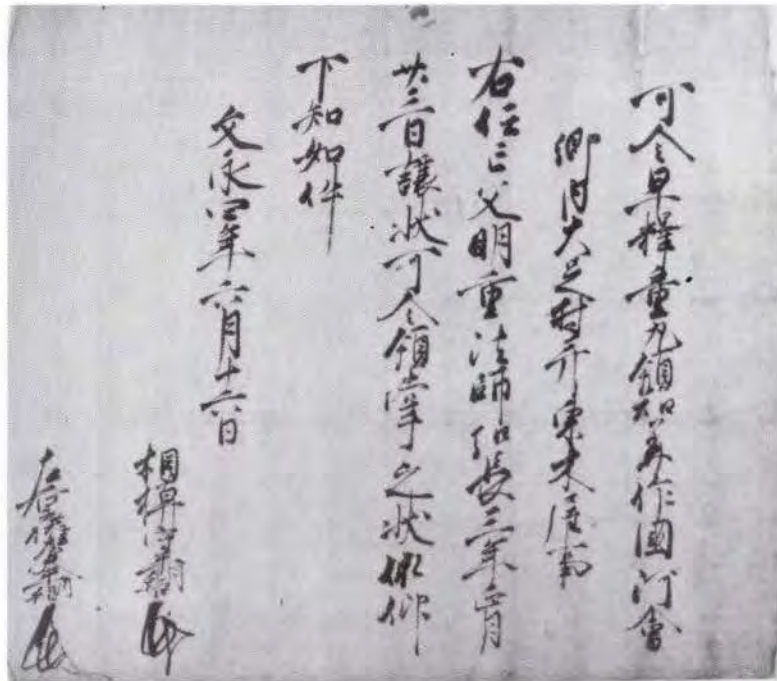 可令早釋童丸領知美作國河會
郷内大足村并東木屋事
右任亡父明重法師弘長三年正月
廿二日譲状可令領掌之状依仰
下知如件
文永四年六月十六日
相模守平朝臣
左京權大夫平朝臣